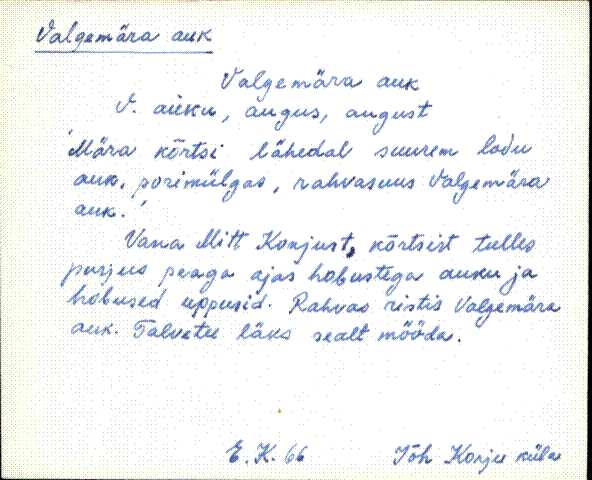 Valgemära auk
Valgemära auk
V. auku, augus, august
'Mära kõrtsi lähedal suurem lodu
auk, porimülgas, rahvasuus Valgemära
auk.'
Vana Mitt Konjust, kõrtsist tulles
purjus peaga ajas hobustega auku ja
hobused uppusid. Rahvas ristis Valgemära
auk. Talvetee läks sealt mööda.
E. K. 66 Jõh Konju küla